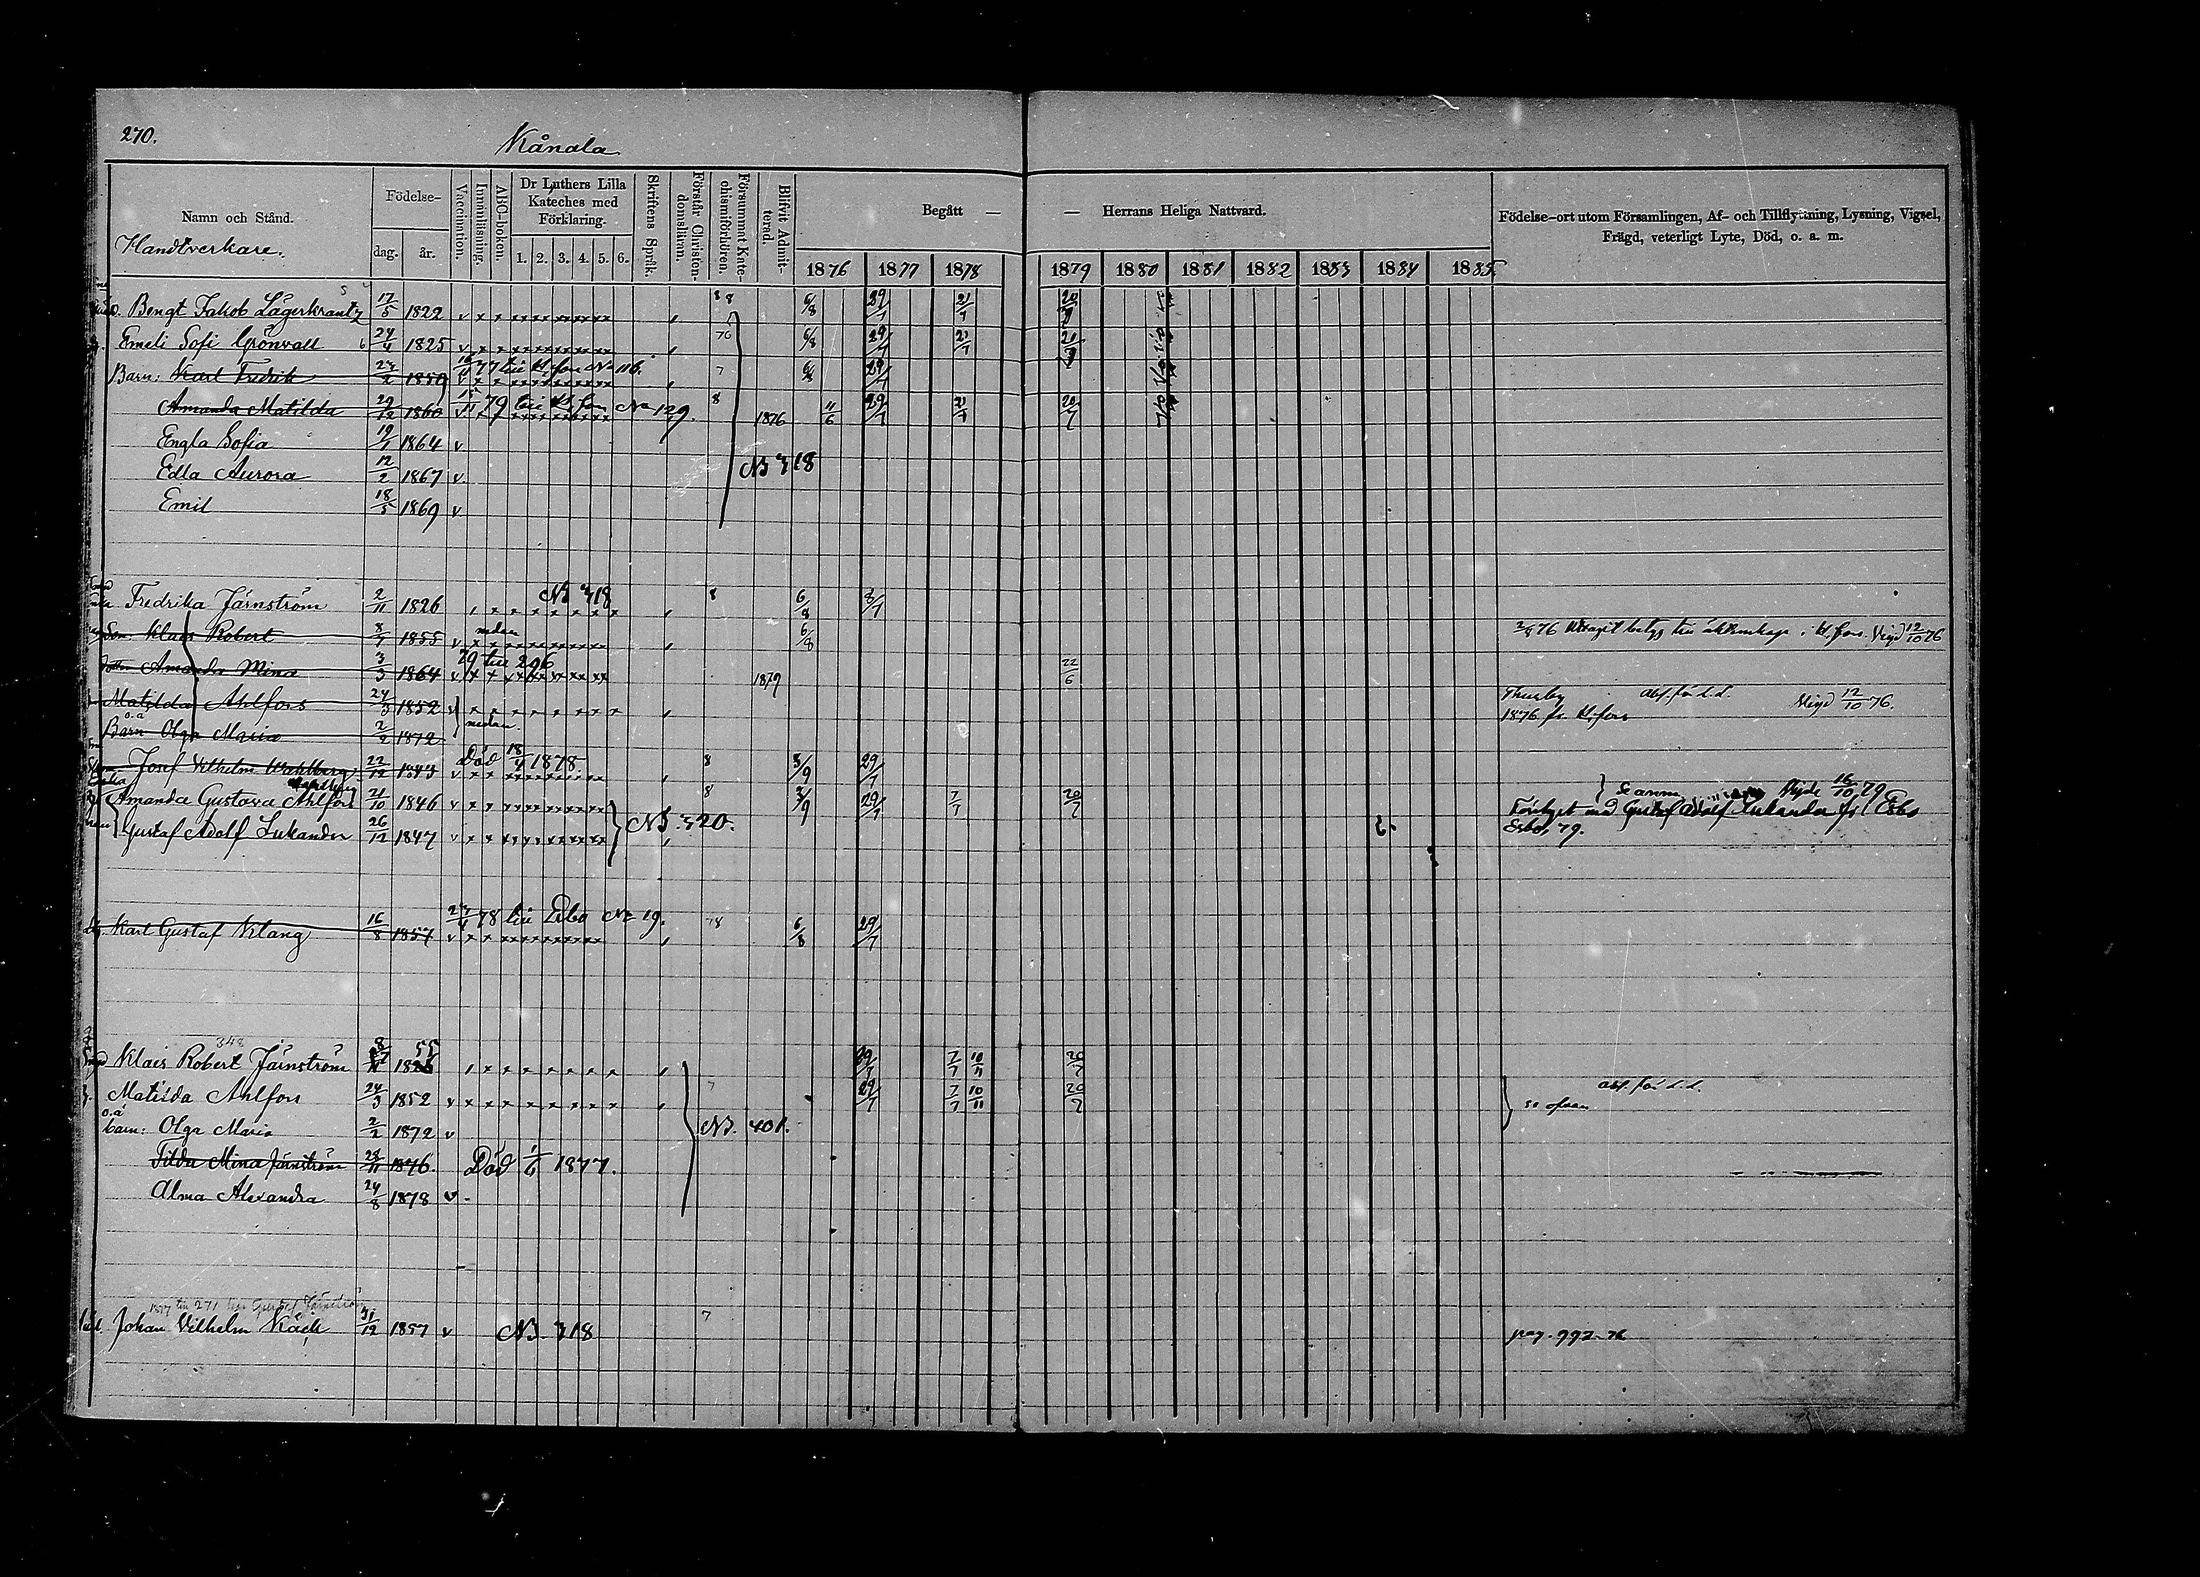 270.
Kånala
Namn och Stånd.
Handtverkare.
Födelse-
dag. år.
Vaccination.
Innanläsning.
ABC-boken.
Dr Luthers Lilla
Kateches med
Förklaring.
1. 2. 3. 4. 5. 6.
Skriftens Språk.
Förstår Christen-
domsläran.
Försummat Kate-
chismiförhören.
Blifvit Admit-
terad.
Begått — — Herrans Heliga Nattvard.
1876 1877 1878 1879 1880 1881 1882 1883 1884 1885
Födelse-ort utom Församlingen, Af- och Tillflyttning, Lysning, Vigsel,
Frägd, veterligt Lyte, Död, o. a. m.
Bengt Jakob Lägerkrantz 17/5 1822 v x x 6/8 29/7 21/7 20/7
Emeli Sofi Grönvall 24/4 1825 v x x 76 6/8 29/7 21/7 20/7
Barn: Karl Fredrik 24/2 1859 77 till H.fors No 116. 7 6/8 29/7
Amanda Matilda 29/12 1860 15/11 79 till H.fors No 129. 8 1876 11/6 29/7 21/7 20/7
Engla Sofia 19/1 1864 v
Edla Aurora 12/2 1867 v N3 318
Emil 18/5 1869 v
Fredrika Järnström 2/11 1826 N3 318 8 6/8 8/7
Son: Klaes Robert 8/7 1855 v nedan 6/8 76 betyg till äktenskap i H.fors. Vigd 12/10 76
Amanda Mina 3/3 1864 79 till 296 1879 22/6
Matilda Ahlfors 24/3 1852 v Thusby abs. för l.l. Vigd 12/10 76.
o.ä. Barn Olga Maria 2/2 1872 nedan. 1876 fr. H.fors
Josef Vilhelm Wahlberg 22/12 1843 Död 18/4 1878. 8 3/9 29/7
Enka Amanda Gustava Ahlfors Wahlberg 21/10 1846 v x x 8 3/9 29/7 7/7 20/7 Vigde 16/10 79
Gustaf Adolf Lukander 26/12 1847 v x x N3. 320. med Gustaf Adolf Lukander fr. Esbo
Esbo, 79.
Karl Gustaf Klang 16/8 1857 78 till Esbo No 19. 78 6/8 29/7
348
Klaes Robert Järnström 8/7 55 29/7 7/7 10/11 20/7
Matilda Ahlfors 24/3 1852 v 7 29/7 7/7 10/11 20/7 abs. för l.l.
o.ä. barn: Olga Maria 2/2 1872 v N3. 401. se ofvan
Tilda Mina Järnström 28/11 1876. Död 1/6 1877.
Alma Alexandra 24/8 1878 v
1877 till 271 hos Gustaf Järnström
Johan Vilhelm Käck 31/12 1857 v N3 318 7 pag. 992. 76